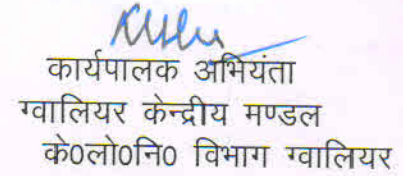 कार्यपालक अभियंता
ग्वालियर केन्द्रीय मण्डल
के0लो0नि0 विभाग ग्वालियर